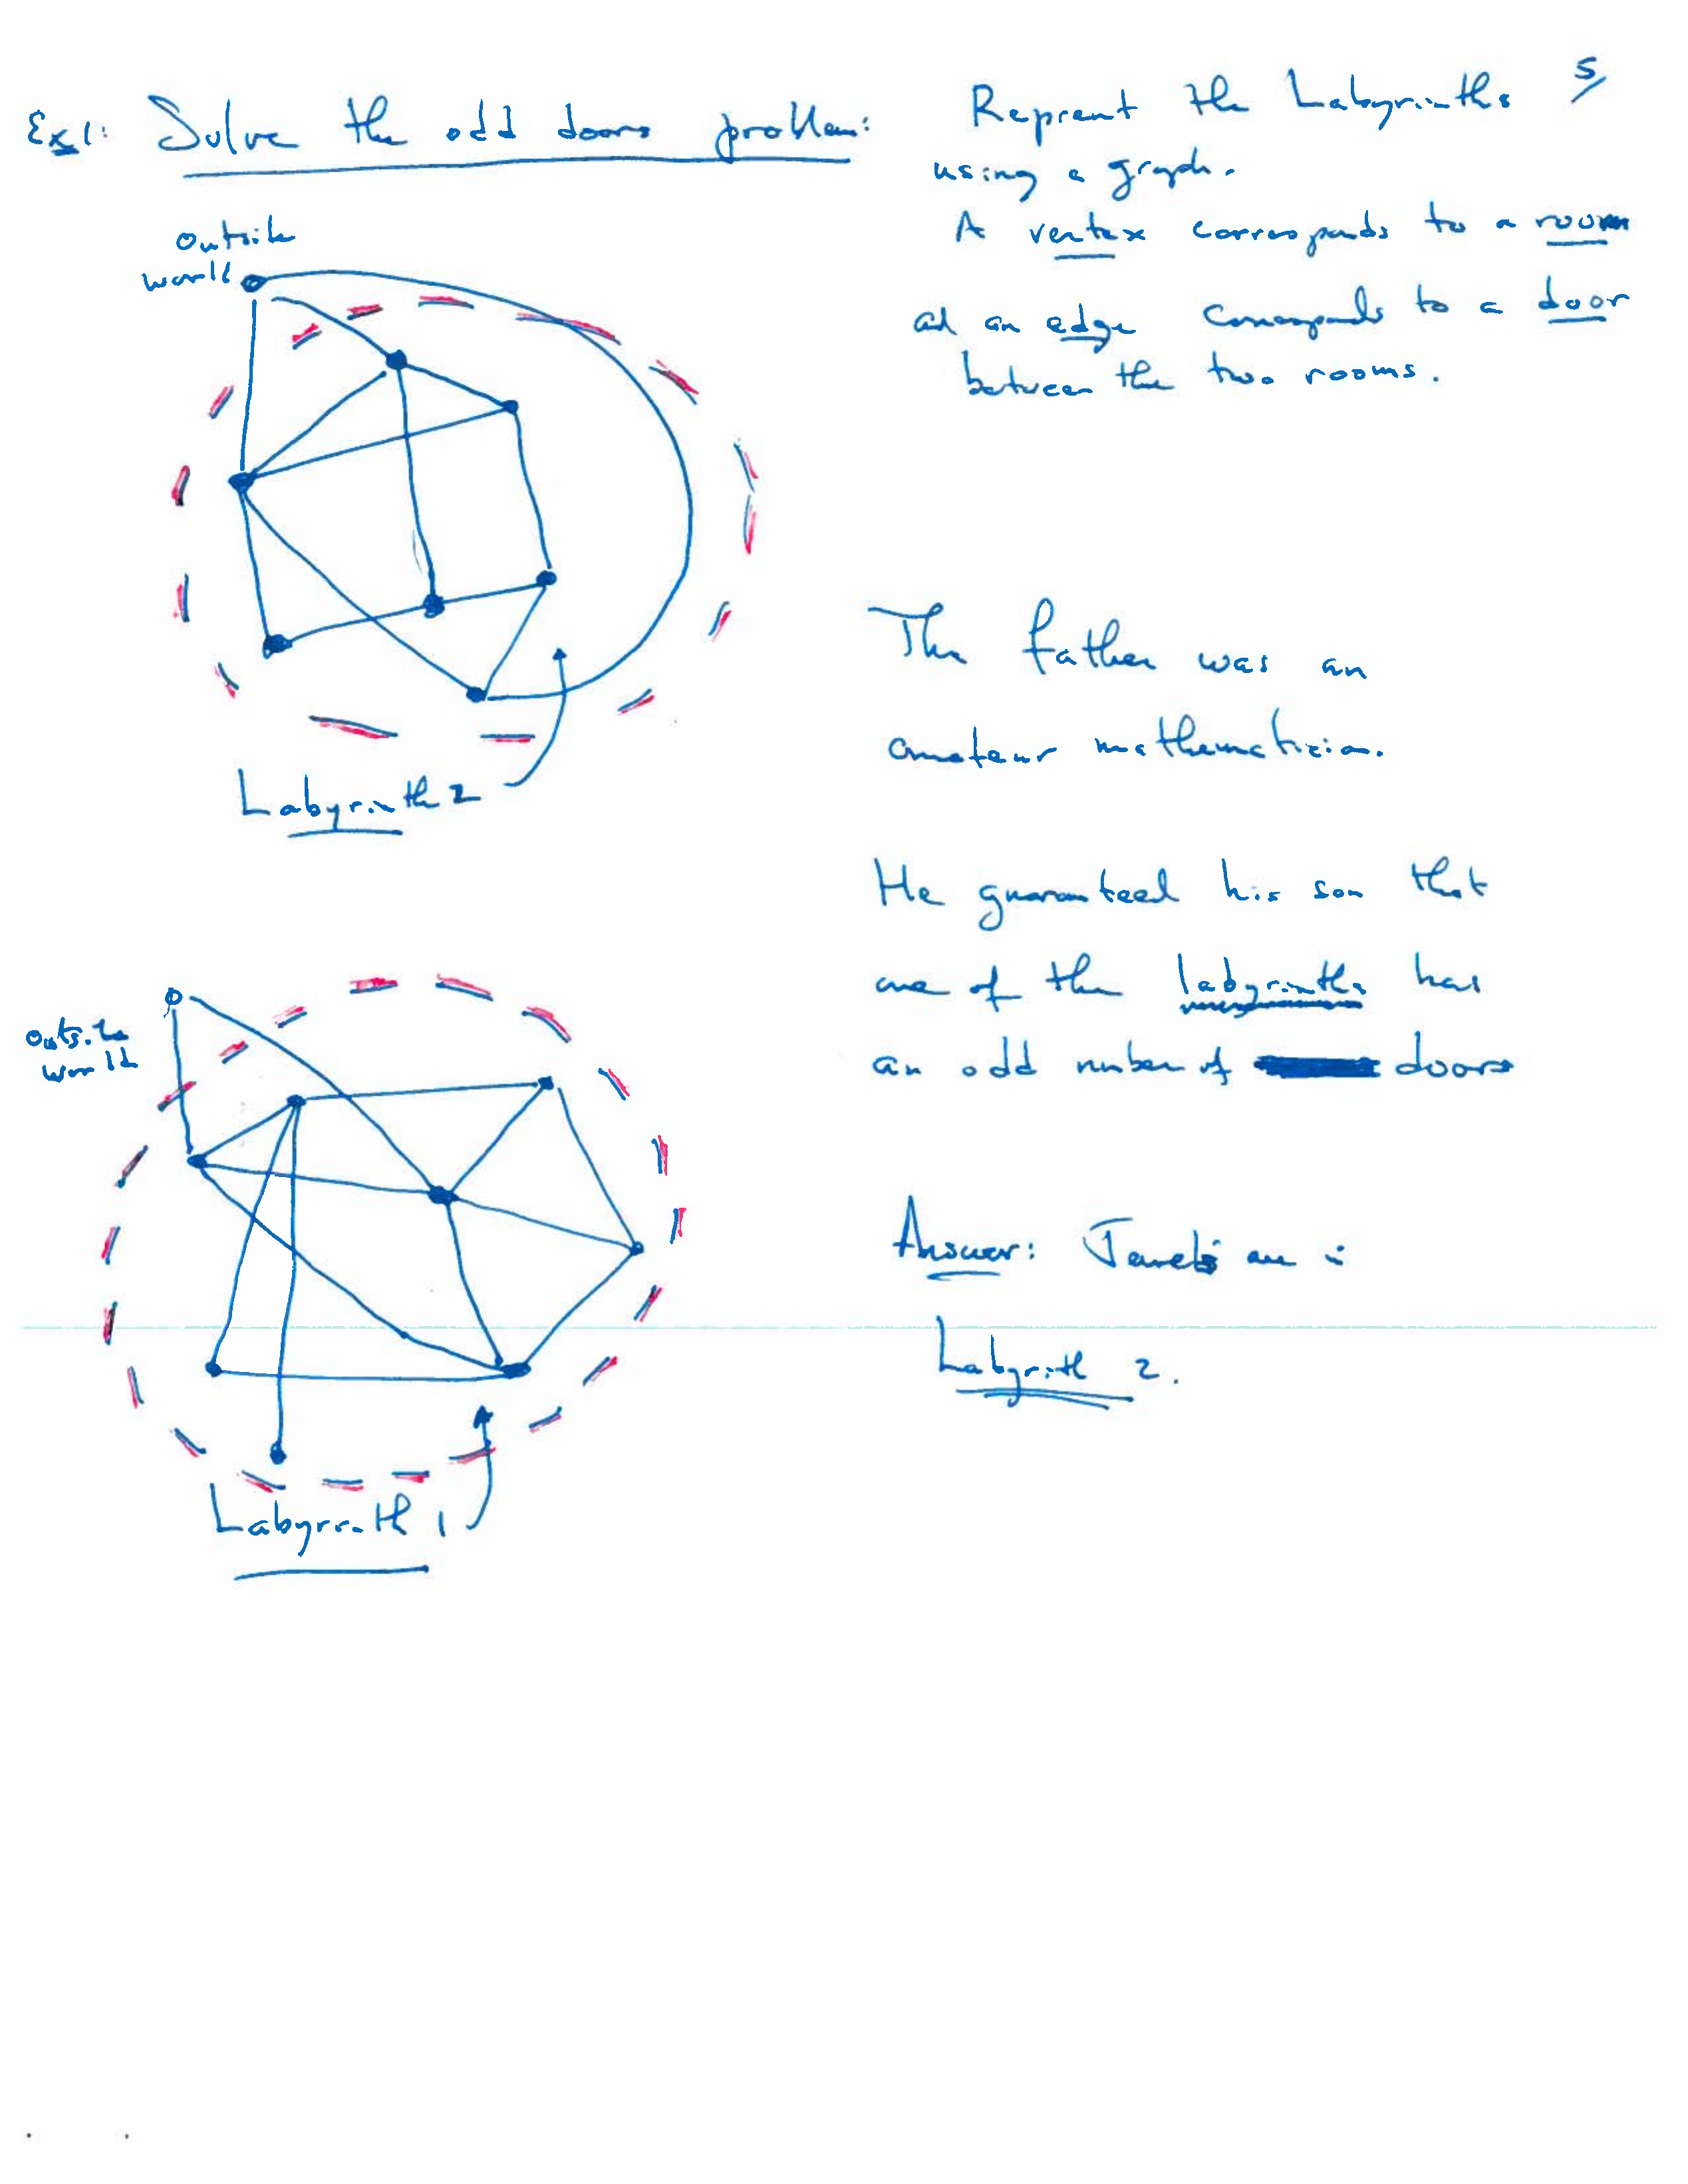 Ex1: Solve the odd doors problem:
5/
Reprent the Labyrinths
using a graph.
A vertex corresponds to a room
ad an edge corresponds to a door
between the two rooms.
outside
world
Labyrinth 2
The father was an
amateur mathematician.
He guaranteed his son that
one of the labyrinths has
an odd number of doors
outside
world
Answer: Jewels are in
Labyrinth 2.
Labyrinth 1